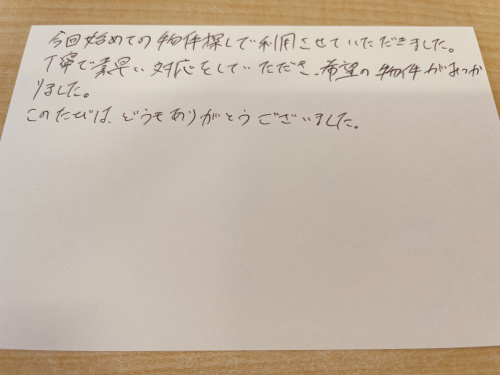 今回始めての物件探しで利用させていただきました。
丁寧で素早い対応をしていただき、希望の物件がみつか
りました。
このたびは、どうもありがとうございました。